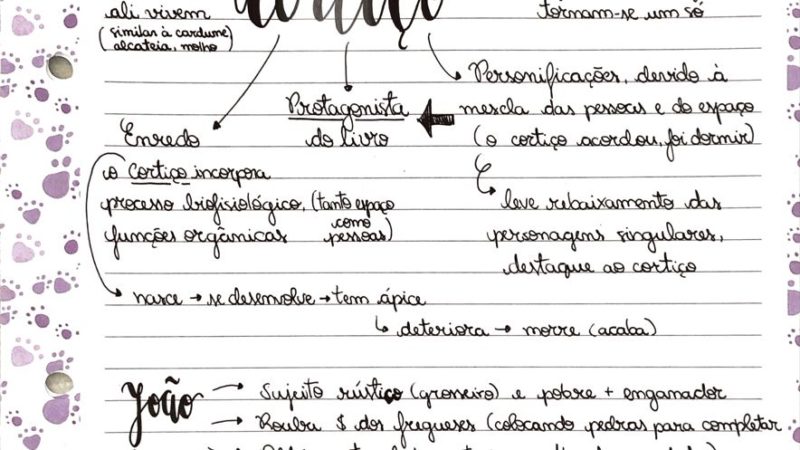 ali vivem
tornam-se um só
(similar à cardume,
alcateia, molho)
Cortiço
Personificações, devido à
mescla das pessoas e do espaço
(o cortiço acordou, foi dormir)
Protagonista
do livro
Enredo
o cortiço incorpora
processo biofisiológico, (tanto espaço
como
funções orgânicas pessoas)
leve rebaixamento das
personagens singulares,
destaque ao cortiço
nasce → se desenvolve → tem ápice
↳ deteriora → morre (acaba)
João → Sujeito rústico (groneiro) e pobre + enganador
→ Roubu $ dos fregueses (colocando pedras para completar